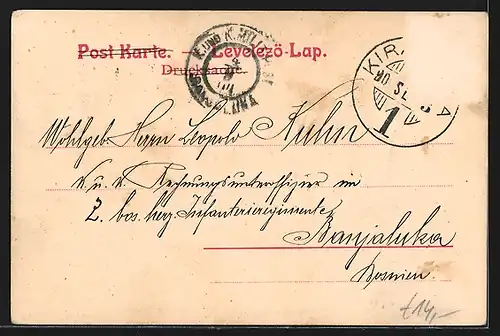 Post Karte. — Levelező-Lap.
Drucksache.
K. UND K. MILIT. POST
BANJALUKA
KIR
A
1
Wohlgeb. Herrn Leopold Kuhn
k. u. k. Rechnungsunteroffizier im
2. bos. herz. Infanterieregimente
Banjaluka
Bosnien.
£14,-